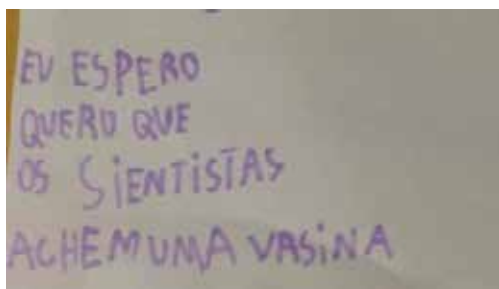 EU ESPERO
QUERO QUE
OS SiENTiSTAS
ACHEM UMA VASiNA